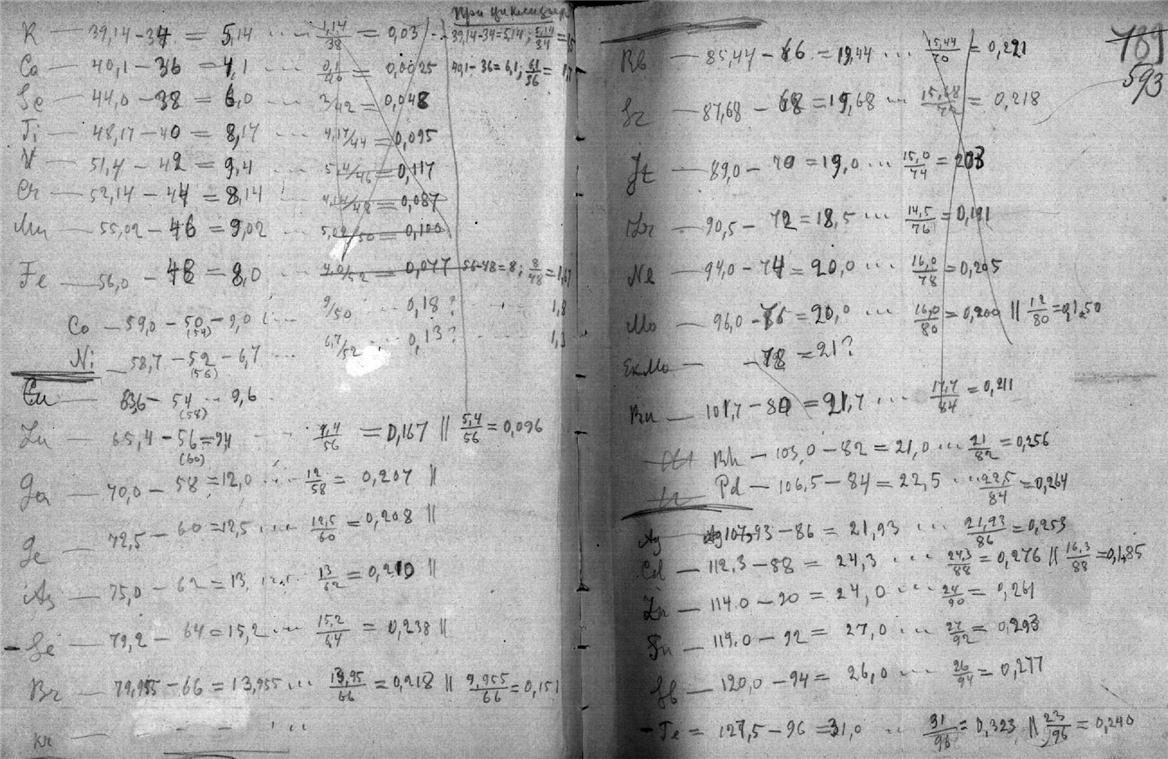 При
K — 39,14-34 = 5,14 ... 1,14/38 = 0,03 .. 39,14-34=5,14; 5,14/34 = 15
Ca — 40,1 - 36 = 4,1 ... 0,1/40 = 0,0025 40,1-36=4,1;
Sc — 44,0 - 38 = 6,0 ... 2/42 = 0,048
Ti — 48,17 - 40 = 8,17 ... 4,17/44 = 0,095
V — 51,4 - 42 = 9,4 ... 5,4/46 = 0,117
Cr — 52,14 - 44 = 8,14 ... 4,14/48 = 0,087
Mn — 55,02 - 46 = 9,02 ... 5,02/50 = 0,100
Fe — 56,0 - 48 = 8,0 ... 4,0/52 = 0,077 56-48=8; 8/48 = 1,67
Co — 59,0 - 50 - 9,0 ... 9/50 ... 0,18? 1,8
(54)
Ni — 58,7 - 52 - 6,7 ... 6,7/52 ... 0,13? 1,3
(56)
Cu — 63,6 - 54 - 9,6
(58)
Zn — 65,4 - 56 = 9,4 ... 9,4/56 = 0,167 || 5,4/56 = 0,096
(60)
Ga — 70,0 - 58 = 12,0 ... 12/58 = 0,207 ||
Ge — 72,5 - 60 = 12,5 ... 12,5/60 = 0,208 ||
As — 75,0 - 62 = 13, ... 13/62 = 0,210 ||
Se — 79,2 - 64 = 15,2 ... 15,2/64 = 0,238 ||
Br — 79,955 - 66 = 13,955 ... 13,95/66 = 0,218 || 9,955/66 = 0,151
Kr —
789
593
Rb — 85,44 - 66 = 19,44 ... 15,44/70 = 0,221
Sr — 87,68 - 68 = 19,68 ... 15,68/72 = 0,218
Yt — 89,0 - 70 = 19,0 ... 15,0/74 = 203
Zr — 90,5 - 72 = 18,5 ... 14,5/76 = 0,191
Nb — 94,0 - 74 = 20,0 ... 16,0/78 = 0,205
Mo — 96,0 - 76 = 20,0 ... 16,0/80 = 0,200 || 12/80 = 0,150
EkMo — - 78 = 21?
Ru — 101,7 - 80 = 21,7 ... 17,7/84 = 0,211
Rh — 103,0 - 82 = 21,0 ... 21/82 = 0,256
Pd — 106,5 - 84 = 22,5 ... 22,5/84 = 0,264
Ag 107,93 - 86 = 21,93 ... 21,93/86 = 0,253
Cd — 112,3 - 88 = 24,3 ... 24,3/88 = 0,276 || 16,3/88 = 0,185
In — 114.0 - 90 = 24,0 ... 24/90 = 0,261
Sn — 119.0 - 92 = 27,0 ... 27/92 = 0,293
Sb — 120,0 - 94 = 26,0 ... 26/94 = 0,277
Te = 127,5 - 96 = 31,0 ... 31/96 = 0,323 || 23/96 = 0,240